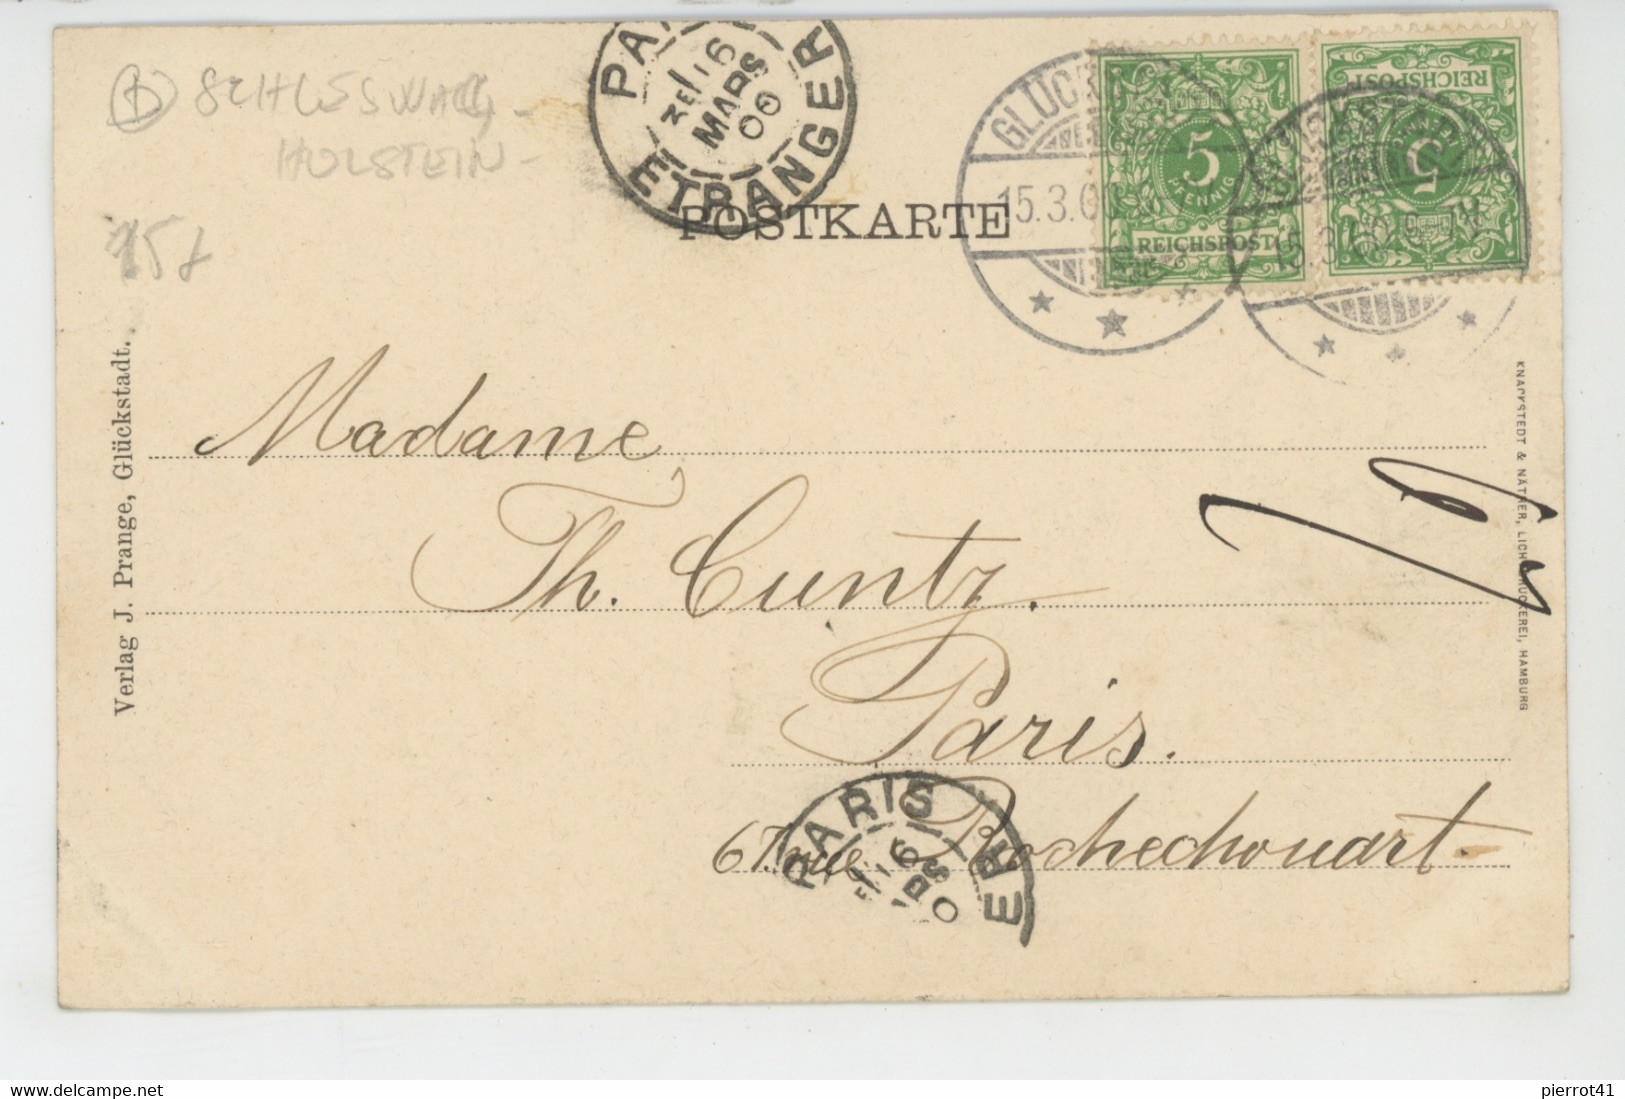 SCHLESWIG -
HOLSTEIN -
PARIS
16
MARS
00
ETRANGER
GLÜCKSTADT
15.3.00
5
PFENNIG
REICHSPOST
GLÜCKSTADT
15.3.00
5
REICHSPOST
POSTKARTE
Verlag J. Prange, Glückstadt.
KNACKSTEDT & NÄTHER, LICHTDRUCKEREI, HAMBURG
Madame
Th. Cuntz.
Paris.
67. rue Rochechouart.
PARIS
16
MARS
ETRANGER
pierrot41
www.delcampe.net